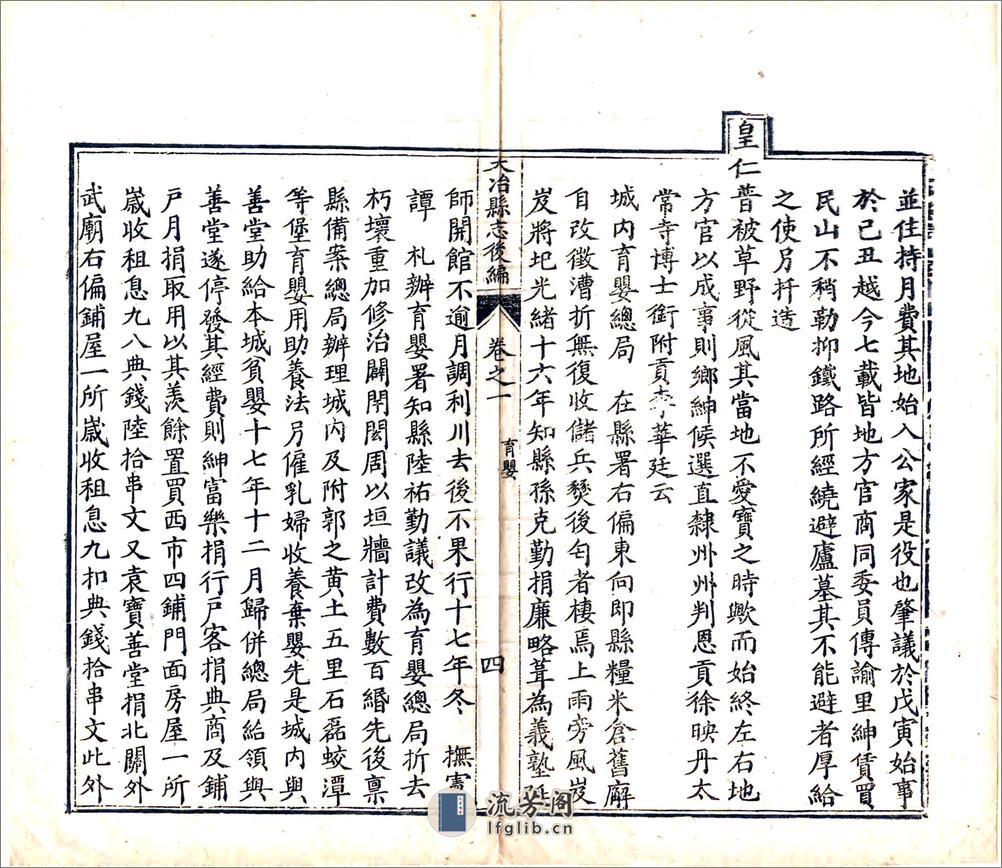 並住持月費其地始入公家是役也肇議於戊寅始事
於己丑越今七載皆地方官商同委員傳諭里紳賃買
民山不稍勒抑鐵路所經繞避廬墓其不能避者厚給
之使另扦造
皇仁普被草野從風其當地不愛寶之時歟而始終左右地
方官以成事則鄉紳候選直隸州州判恩貢徐映丹太
常寺博士銜附貢李華廷云
城內育嬰總局　在縣署右偏東向即縣糧米倉舊廨
自改徵漕折無復收儲兵燹後匄者棲焉上雨旁風岌
岌將圮光緒十六年知縣孫克勤捐廉略葺為義塾延
大冶縣志後編　卷之一　育嬰　四
師開館不逾月調利川去後不果行十七年冬　撫憲
譚　札辦育嬰署知縣陸祐勤議改為育嬰總局折去
朽壞重加修治闢閈閎周以垣牆計費數百緡先後稟
縣備案總局辦理城內及附郭之黃土五里石磊蛟潭
等堡育嬰用助養法另僱乳婦收養棄嬰先是城內與
善堂助給本城貧嬰十七年十二月歸併總局給領與
善堂遂停發其經費則紳富樂捐行戶客捐典商及鋪
戶月捐取用以其羨餘置買西市四鋪門面房屋一所
歲收租息九八典錢陸拾串文又袁寶善堂捐北關外
武廟右偏鋪屋一所歲收租息九扣典錢拾串文此外
流芳阁
lfglib.cn